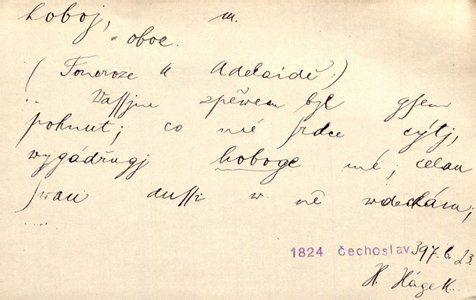 hoboj, m.
= oboe.
(Toneroze k Adelaidě.)
.. Wassjm zpěwem byl gsem
pohnut; co mé srdce cýtj,
wygádřugj hoboge mé; celau
swau dussi w ně wdechám;
....
1824 Čechoslav 397. b 23.
H. Hágek.